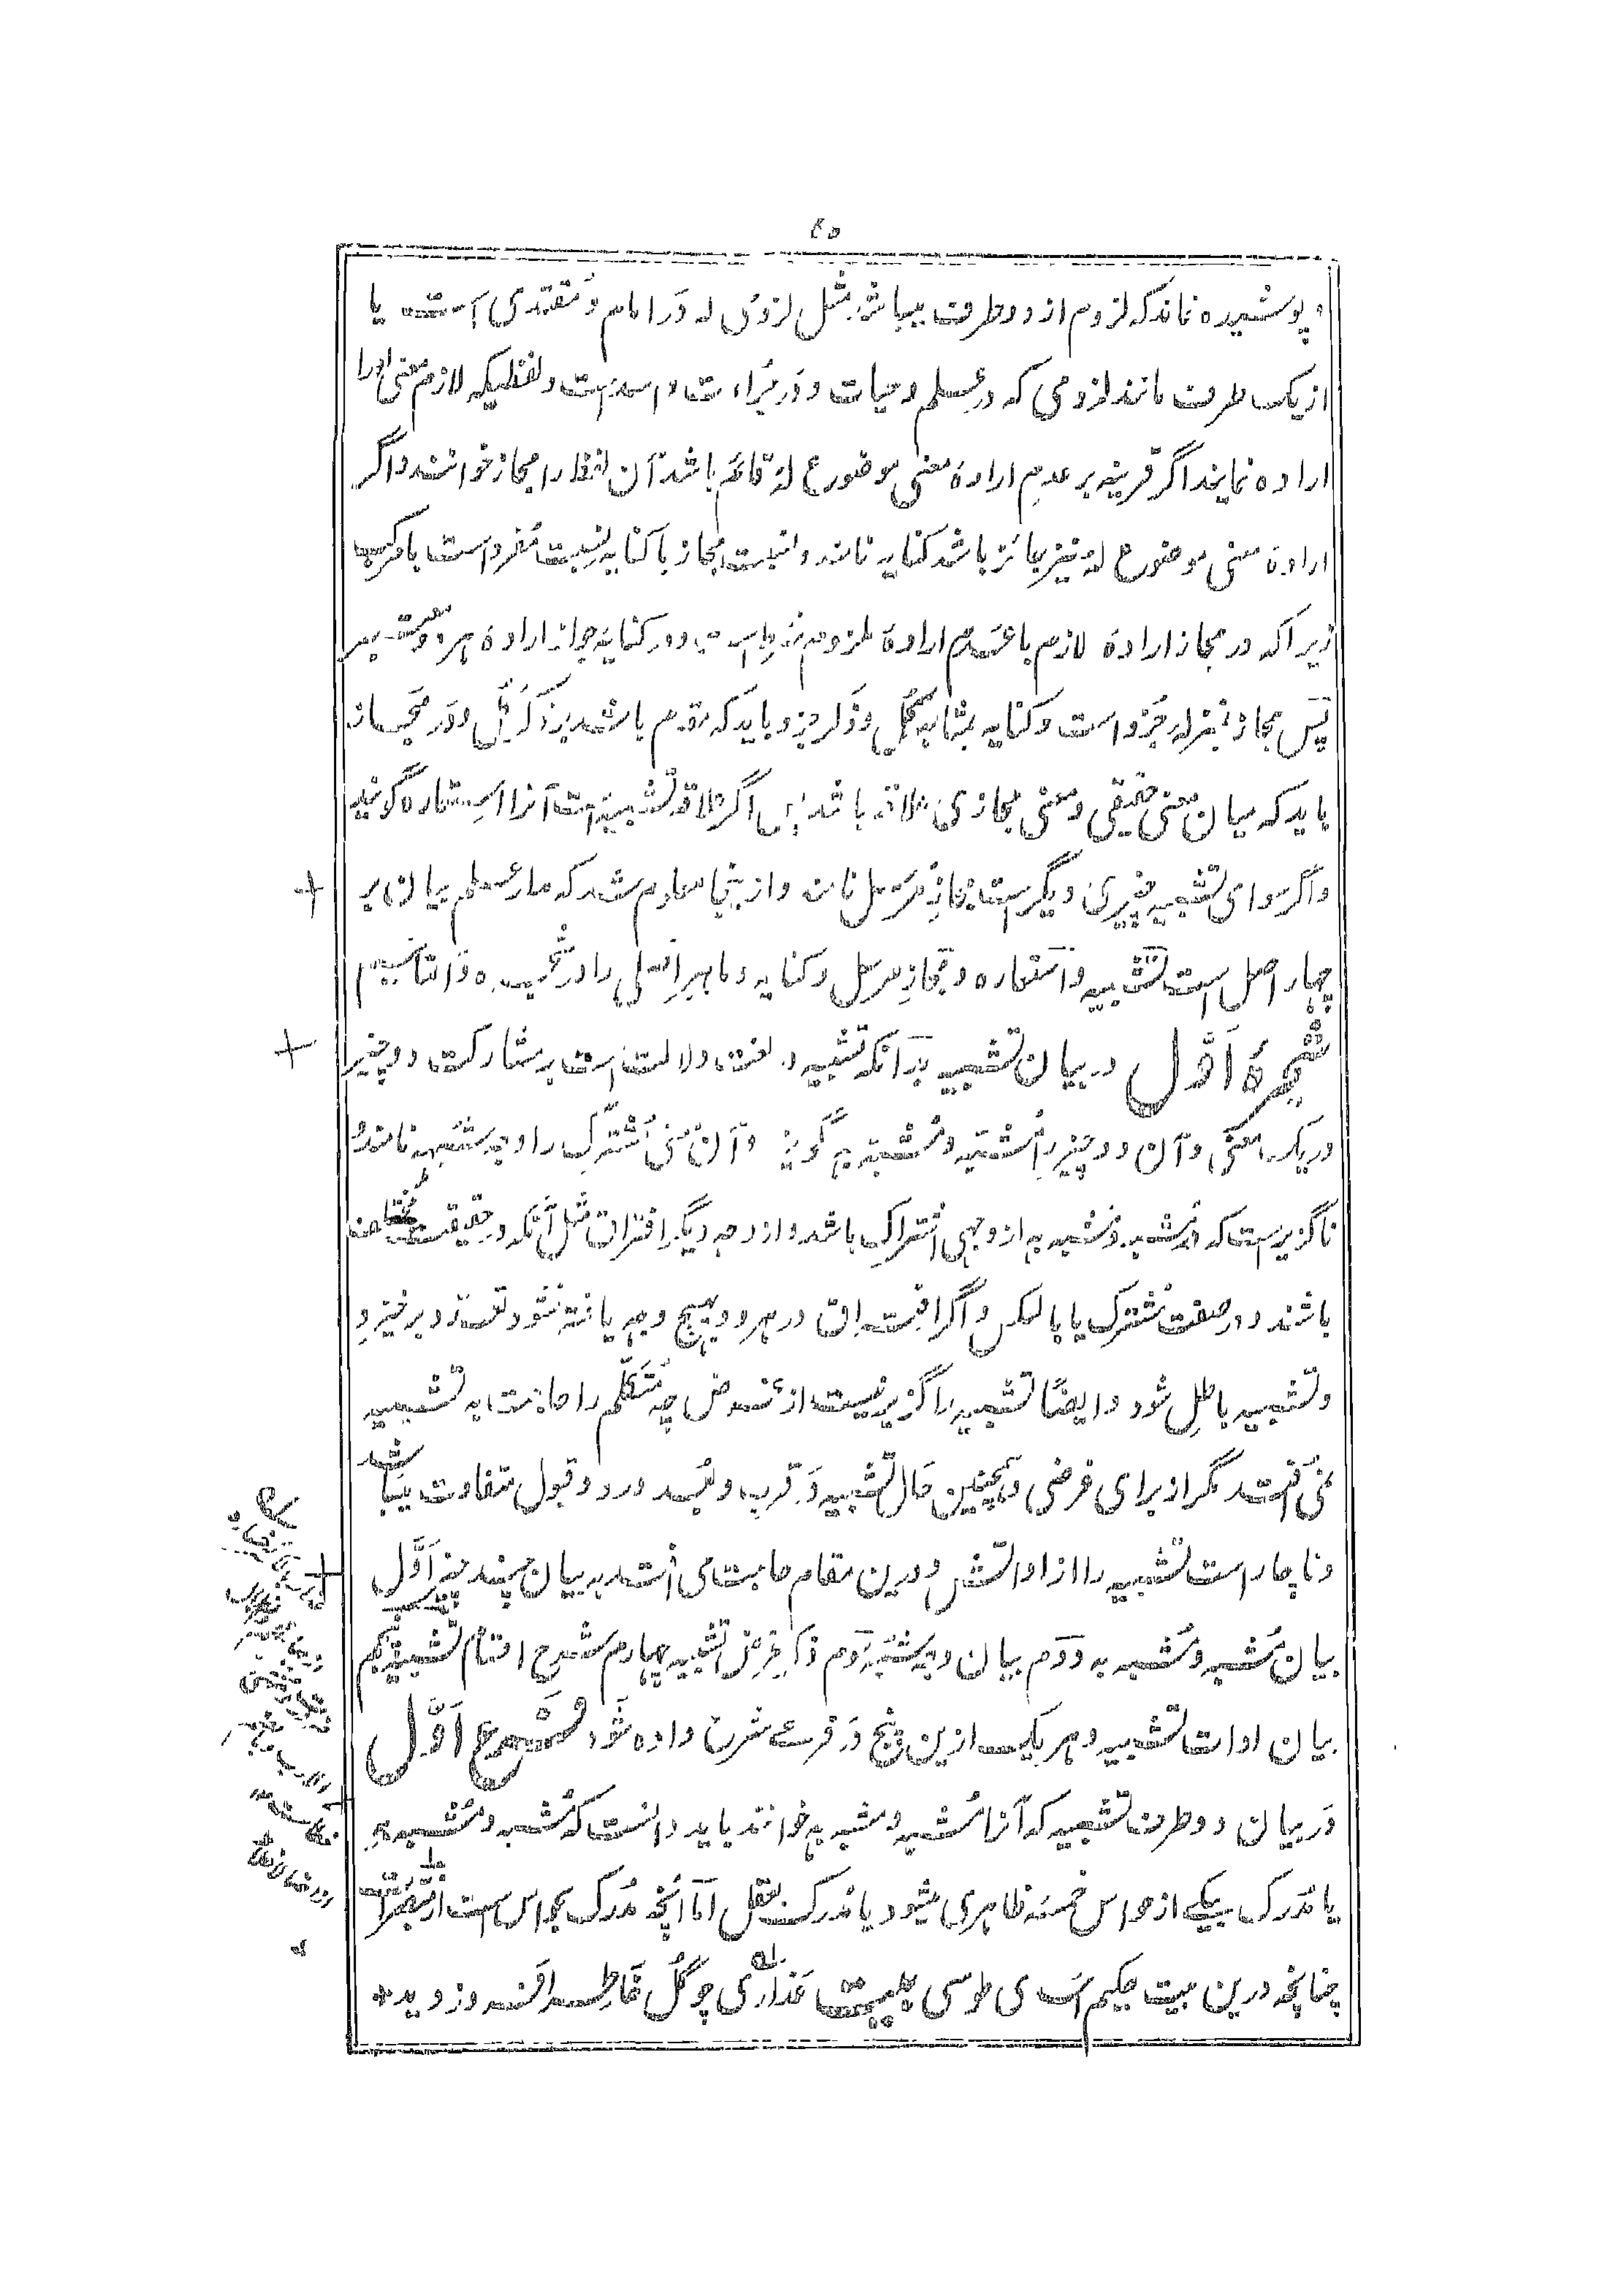 ۴۵
و پوشیده نماند که لزوم از دو طرف میباشد مثل لزومی که در امام و مقتدی است یا
از یک طرف مانند لزومی که در علم و حیات و در جراءت و اسد است و لفظیکه لازم معنی او را
اراده نمایند اگر قرینه بر عدم اراده معنی موضوع له قائم باشد آن لفظ را مجاز خوانند و اگر
اراده معنی موضوع له نیز جائز باشد کنایه نامند و نسبت مجاز با کنایه نسبت مفرد است با مرکب
زیراکه در مجاز اراده لازم با عدم اراده ملزوم است و در کنایه جواز اراده هر دو معتبر
پس مجاز بمنزله جزو است و کنایه بمثابه کل و ذکر جزو باید که مقدم باشد بر ذکر کل و در مجاز
باید که میان معنی حقیقی و معنی مجازی علاقه باشد پس اگر علاقه تشبیه است آنرا استعاره گویند
و اگر سوای تشبیه چیزی دیگر است مجاز مرسل نامند و از ینجا معلوم شد که مدار علم بیان بر
چهار اصل است تشبیه و استعاره و مجاز مرسل و کنایه و ما هر اصلی را در شجره
شجرهٔ اوّل در بیان تشبیه بدانکه تشبیه در لغت دلالت است بر مشارکت دو چیز
در یک معنی و آن دو چیز را مشبه و مشبه به گویند و آن معنی مشترک را وجه شبه نامند
ناگزیر است که در مشبه و مشبه به از وجهی اشتراک باشد و از وجه دیگر افتراق مثل آنکه در حقیقت مختلف
باشند و در صفت مشترک یا بالعکس و اگر افتراق در هر دو بهیچ وجه یافته نشود تعدد برخیزد
و تشبیه باطل شود و ایضا تشبیه را گزیر نیست از غرض چه متکلم را حاجت به تشبیه
نمی افتد مگر از برای غرضی و همچنین حال تشبیه در قرب و بعد و رد و قبول متفاوت میباشد
و ناچار است تشبیه را از ادواتش و درین مقام حاجت می افتد به بیان چند چیز اوّل
بیان مشبه و مشبه به دوم بیان وجه شبه سوم ذکر غرض تشبیه چهارم شرح اقسام تشبیه پنجم
بیان ادات تشبیه و هر یک ازین پنج در فرعی شرف داده شود فرع اوّل
در بیان دو طرف تشبیه که آنرا مشبه و مشبه به خوانند باید دانست که مشبه و مشبه به
یا مدرک بیکی از حواس خمسه ظاهری میشود یا مدرک بعقل اما آنچه مدرک بحواس است از مبصرات
چنانچه درین بیت حکیم اسدی طوسی بیت عذاری چو گل